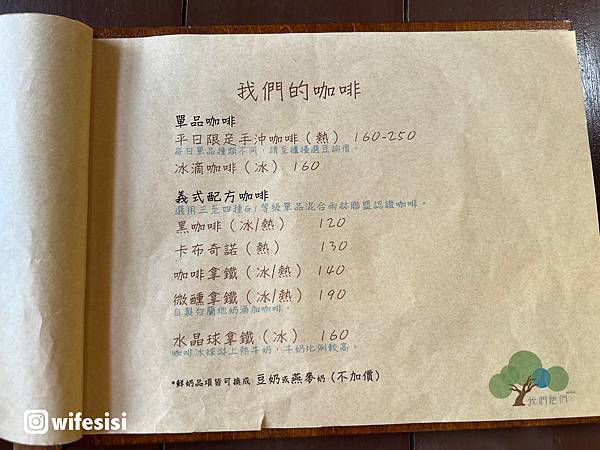 我們的咖啡
單品咖啡
平日限定手沖咖啡(熱) 160-250
每日單品種類不同,請至櫃檯選豆詢價。
冰滴咖啡(冰) 160
義式配方咖啡
選用三至四種G1等級單品混合雨林聯盟認證咖啡。
黑咖啡(冰/熱) 120
卡布奇諾(熱) 130
咖啡拿鐵(冰/熱) 140
微醺拿鐵(冰/熱) 190
自製白蘭地奶酒加咖啡。
水晶球拿鐵(冰) 160
咖啡冰球淋上熱牛奶,牛奶比例較高。
*鮮奶品項皆可換成 豆奶或燕麥奶(不加價)
我們他們
wifesisi